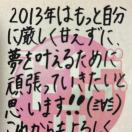 2013年はもっと自分
に厳しく甘えずに、
夢を叶えるために
頑張っていきたいと
思います!!!(ミ∀ミ)
これからもよろしく